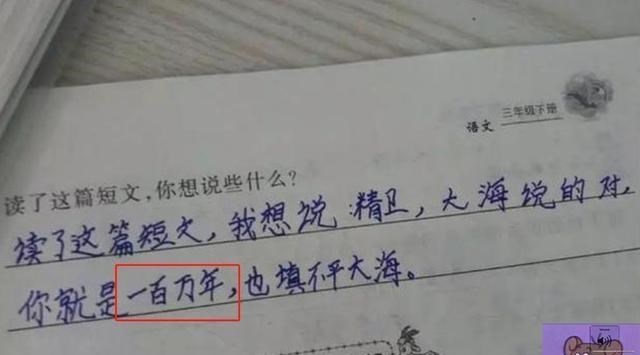 语文 三年级下册
读了这篇短文,你想说些什么?
读了这篇短文,我想说:精卫,大海说的对,
你就是一百万年,也填不平大海。